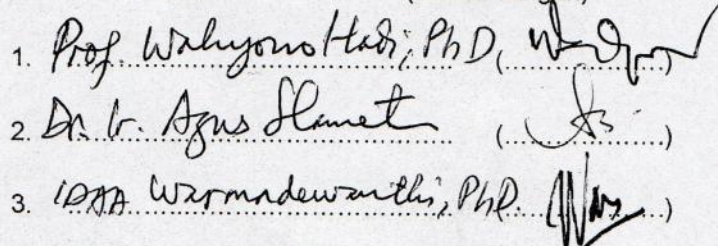 1. Prof. Wahyono Hadi, PhD. (..........)
2. Dr. Ir. Agus Slamet (..........)
3. IDAA Warmadewanthi, PhD. (..........)